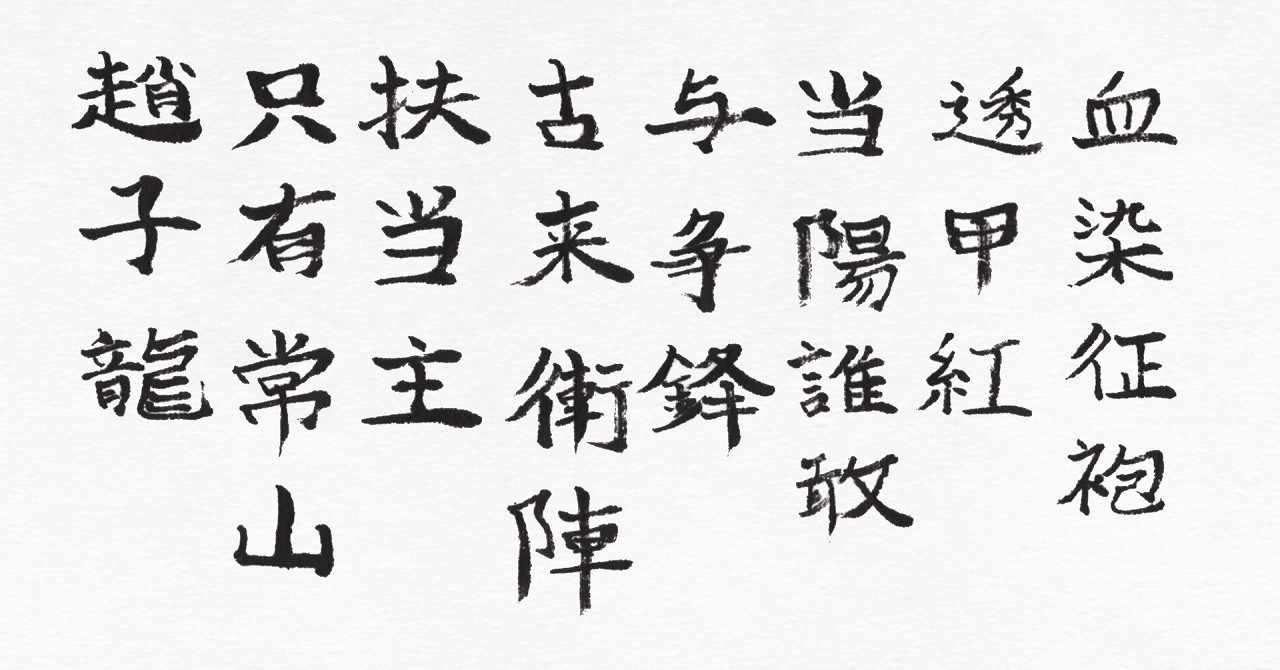 血染征袍
透甲紅
当陽誰敢
与争鋒
古来衝陣
扶当主
只有常山
趙子龍